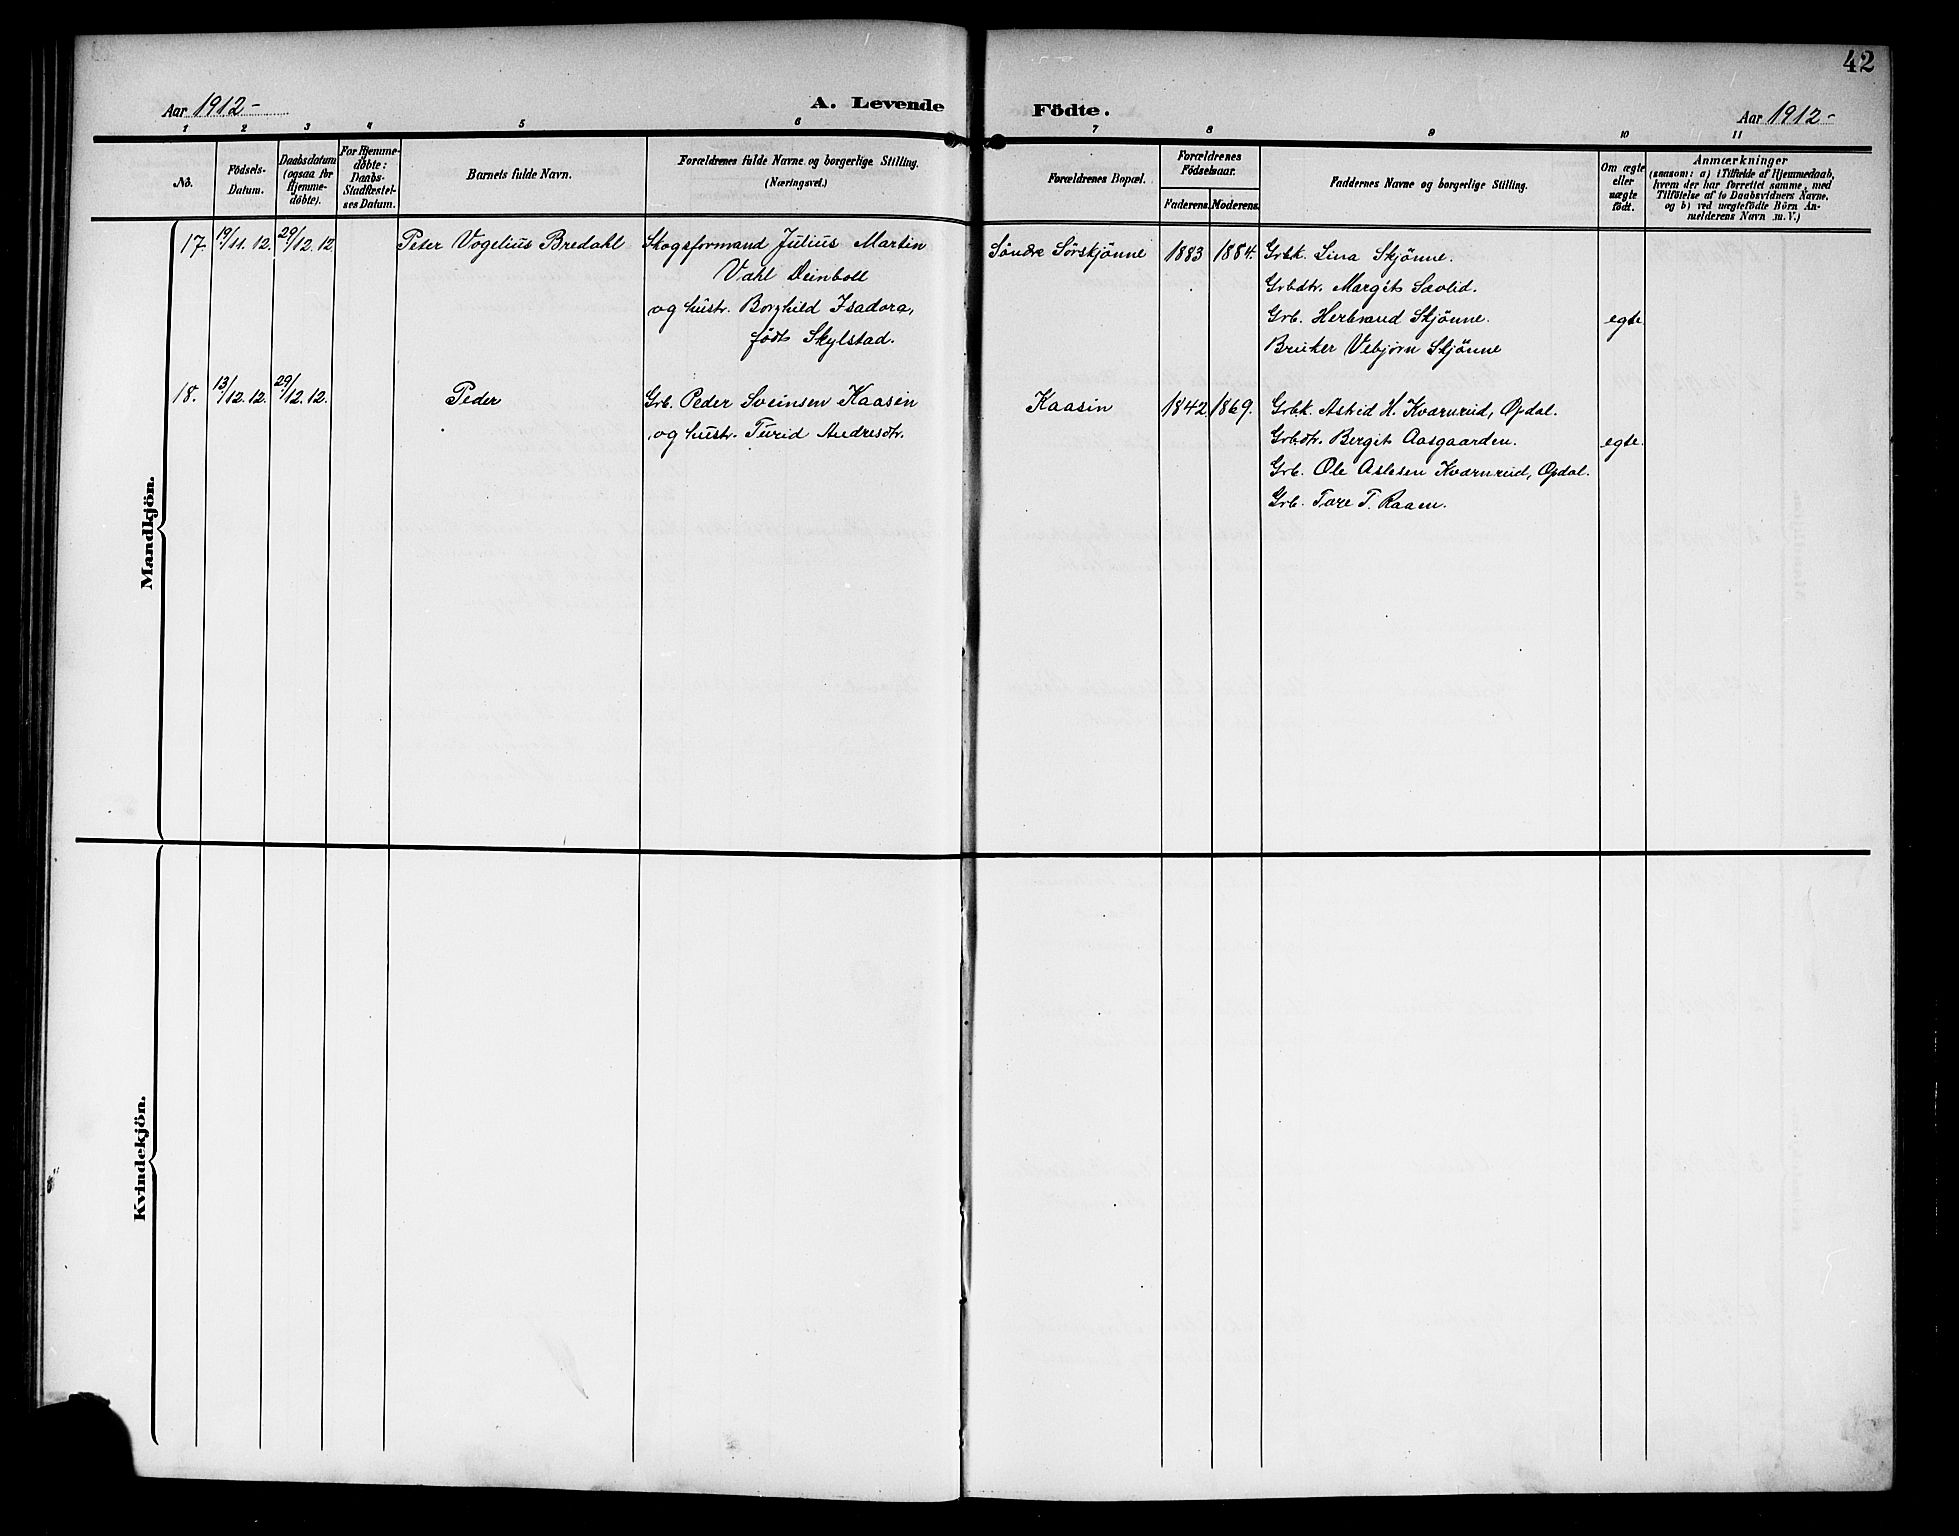 42
Aar 1912-
A. Levende Födte.
Aar 1912-
1 2 3 4 5 6 7 8 9 10 11
No.
Födsels-Datum.
Daabsdatum (ogsaa for Hjemme-döbte).
For Hjemme-döbte: Daabs-Stadfæstel-ses Datum.
Barnets fulde Navn.
Forældrenes fulde Navne og borgerlige Stilling. (Næringsvei.)
Forældrenes Bopæl.
Forældrenes Födselsaar.
Faderens. Moderens.
Faddernes Navne og borgerlige Stilling.
Om ægte eller uægte födt.
Anmærkninger
(saasom: a) i Tilfælde af Hjemmedaab,
hvem der har forrettet samme, med
Tilföielse af to Daabsvidners Navne,
og b) ved uægtefödte Börn An-
melderens Navn m. V.)
Mandkjön.
17. 19/11. 12. 29/12. 12 Peter Vogelius Bredahl Skogsformand Julius Martin Søndre Sørskjønne 1883 1884. Grbk. Lina Skjønne.
Vahl Deinboll Grbdtr. Margit Sævlid.
og hustr. Borghild Isadora, Grb. Herbrand Skjønne. egte
født Skylstad. Bruker Vebjørn Skjønne
18. 13/12. 12. 29/12. 12. Peder Grb. Peder Sveinsen Kaasin Kaasin 1842 1869. Grbk. Astrid H. Kværnrud, Opdal.
og hustr. Turid Andresdtr. Grbdtr. Bergit Aasgaarden. egte.
Grb. Ole Aslesen Kværnrud, Opdal.
Grb. Tore T. Raaen.
Kvindekjön.